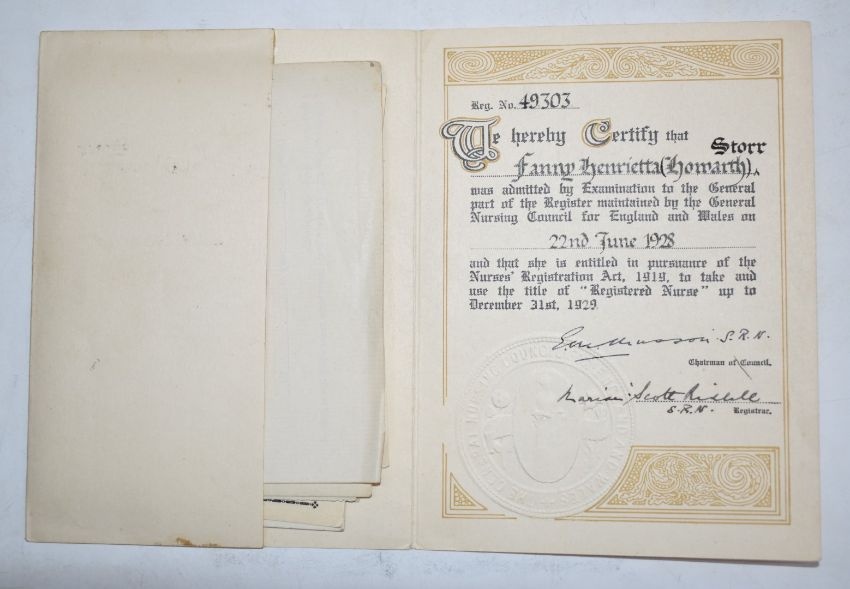 Reg. No. 49303
We hereby Certify that
Storr
Fanny Henrietta (Howarth),
was admitted by Examination to the General
part of the Register maintained by the General
Nursing Council for England and Wales on
22nd June 1928
and that she is entitled in pursuance of the
Nurses' Registration Act, 1919, to take and
use the title of "Registered Nurse" up to
December 31st, 1929.
S.R.N.
Chairman of Council.
Marian Scott
S.R.N. Registrar.